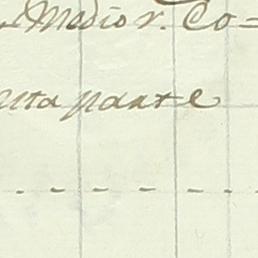 Medio r. Co=
nta parte